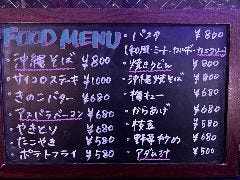 FOOD MENU
・沖縄そば ¥800
・サイコロステーキ ¥1000
・きのこバター ¥680
・アスパラベーコン ¥680
・やきとり ¥580
・たこやき ¥580
・ポテトフライ ¥580
・パスタ ¥800
・焼きうどん ¥800
・沖縄焼そば ¥800
・梅キュー ¥680
・からあげ ¥680
・枝豆 ¥580
・野菜炒め ¥680
・アダムシオ ¥500